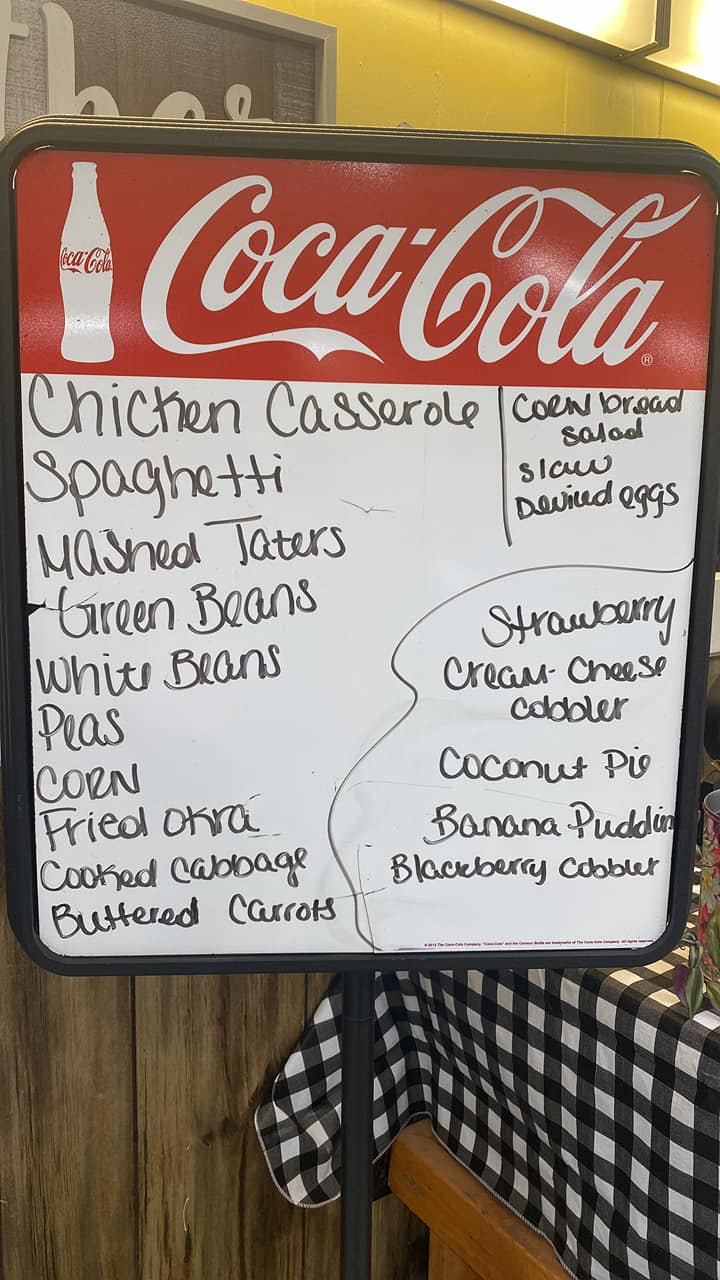 Coca-Cola
Coca-Cola®
Chicken Casserole
Spaghetti
Mashed Taters
Green Beans
White Beans
Peas
CORN
Fried okra
Cooked Cabbage
Buttered Carrots
Corn bread
salad
slaw
Deviled eggs
Strawberry
Cream-Cheese
Cobbler
Coconut Pie
Banana Puddin
Blackberry Cobbler